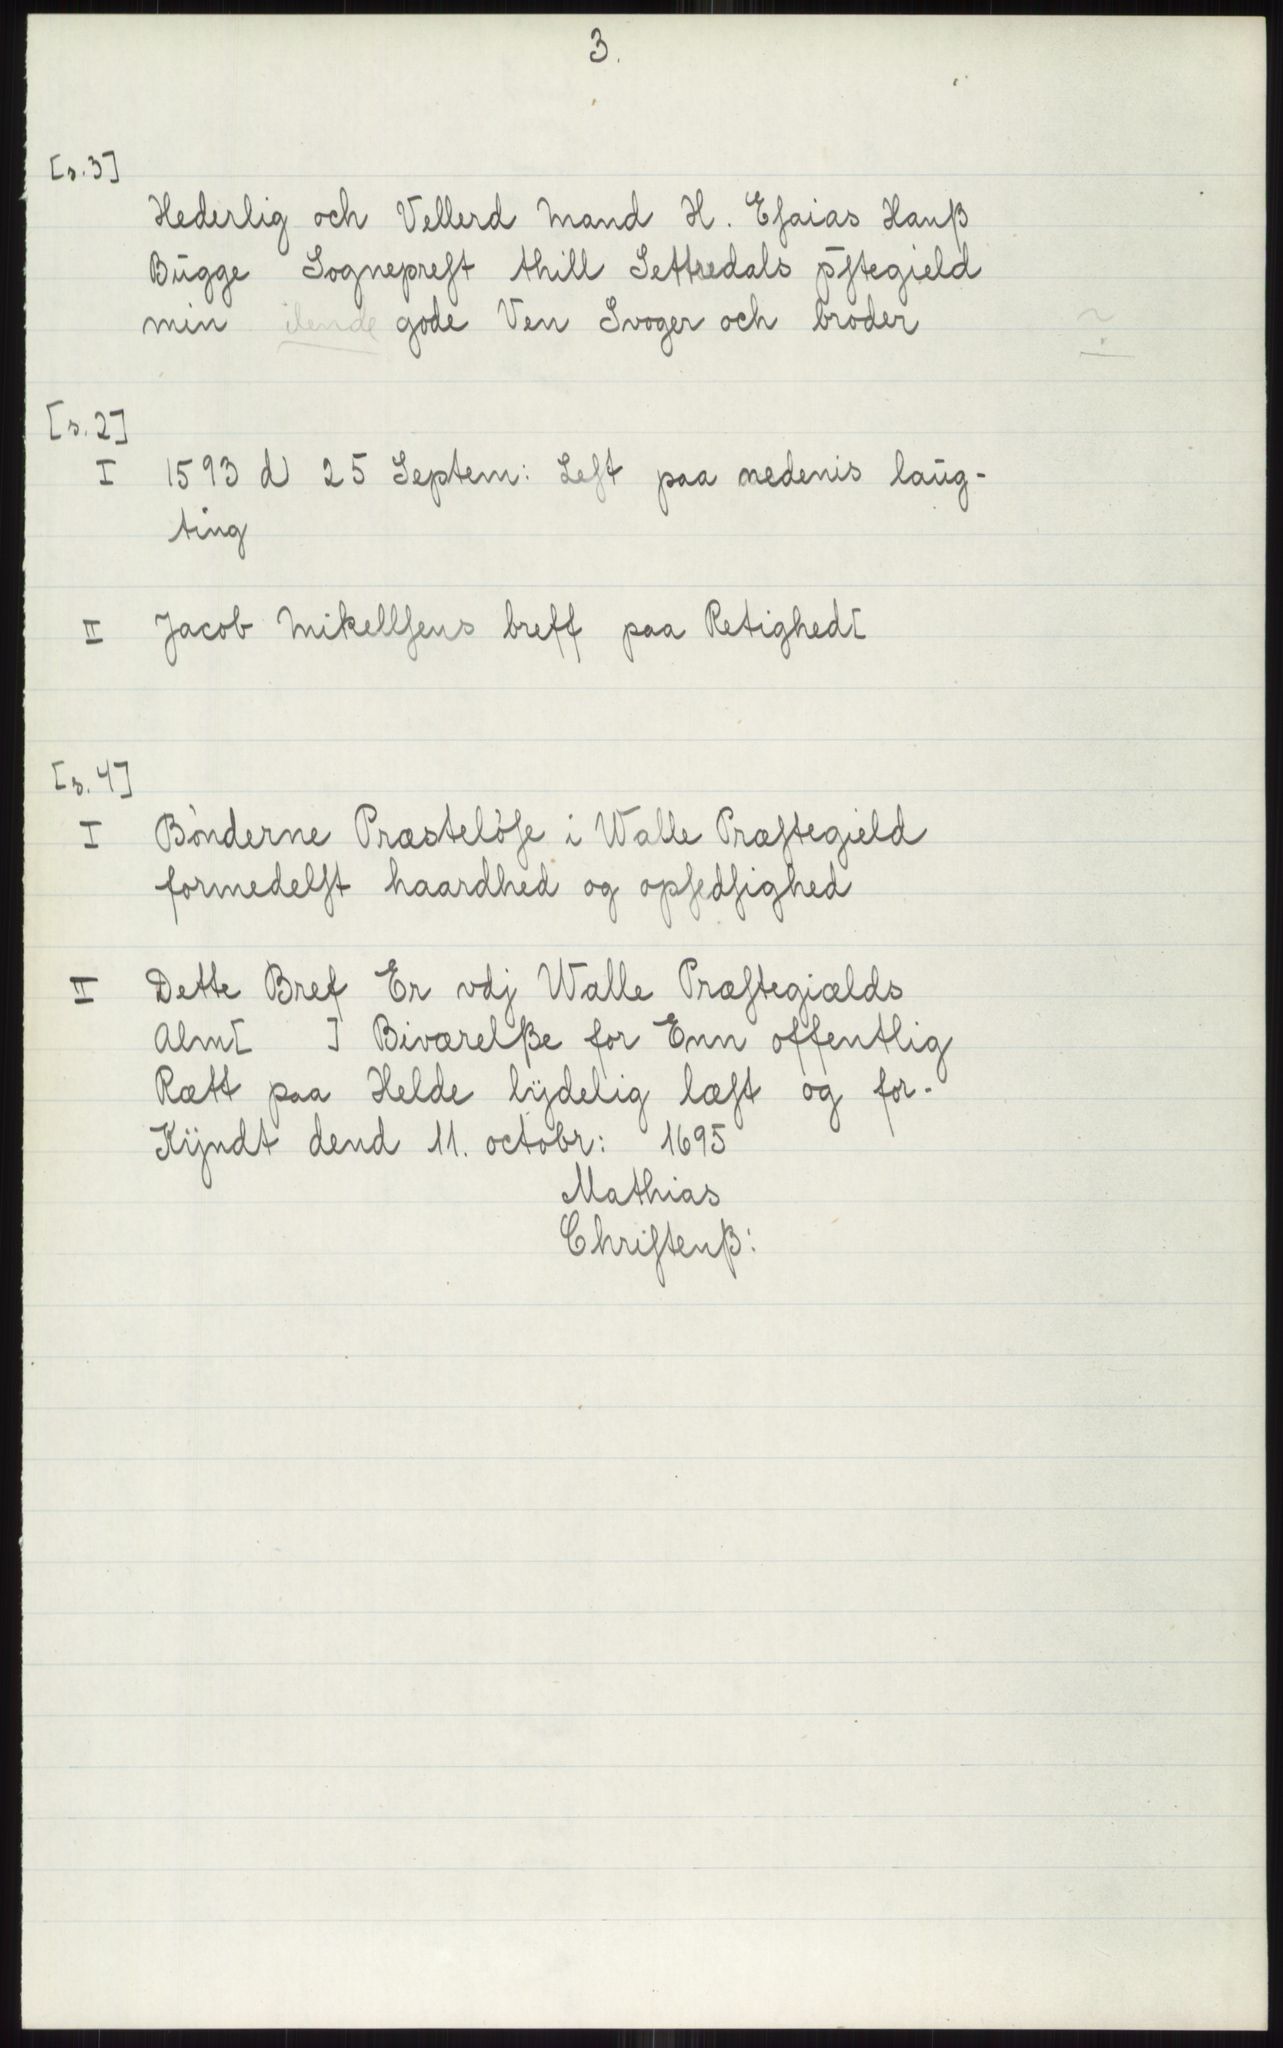 3.
[s.3]
Hederlig och Vellerd Mand H. Eſaias Hanß
Bŭgge Sogneprest thill Settredals p̄ſtegield
min ilende gode Ven Svoger och broder
[s.2]
I 1593 d 25 Septem: Leſt paa nedenis laŭg-
ting
II Jacob Mikellſens breff paa Retighed[
[s.4]
I Bònderne Præstelòſe i Walle Præſtegield
formedelſt haardhed og opſedſighed
II Dette Bref Er vdj Walle Præſtegiælds
Alm[ ] Biværelße for Enn offentlig
Rætt paa Helde lÿdelig læſt og for-
Kÿndt dend 11. octobr: 1695
Mathias
Chriſtenß: